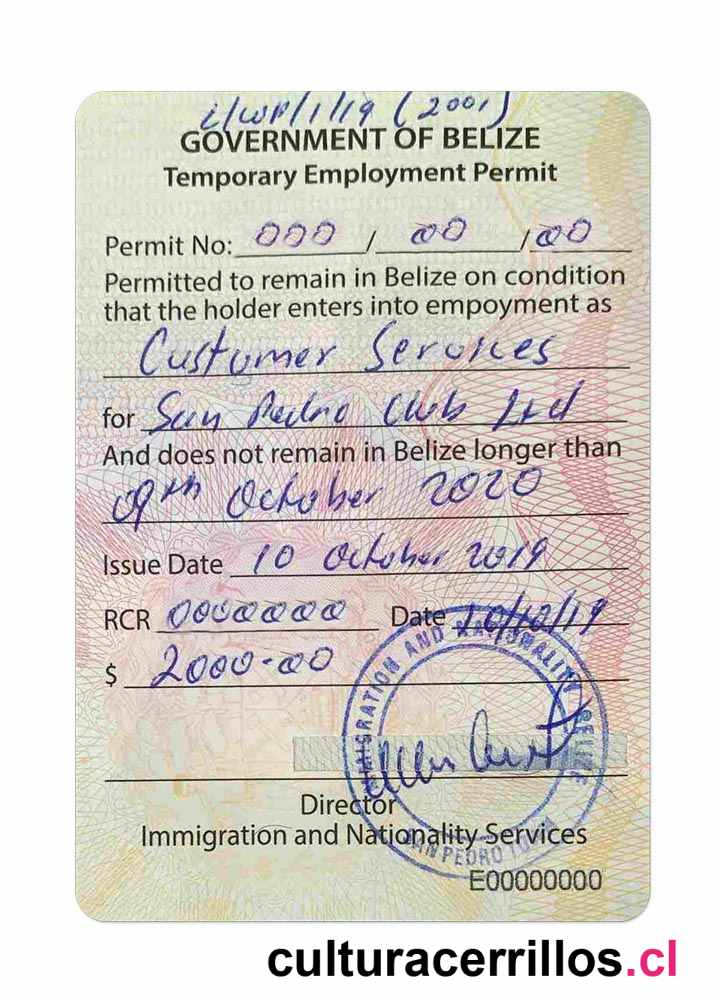 i/WP/1/19 (2001)
GOVERNMENT OF BELIZE
Temporary Employment Permit
Permit No: 000 / 00 / 00
Permitted to remain in Belize on condition
that the holder enters into empoyment as
Customer Services
for San Pedro Club Ltd
And does not remain in Belize longer than
09th October 2020
Issue Date 10 October 2019
RCR 0000000 Date 10/10/19
$ 2000-00
IMMIGRATION AND NATIONALITY BELIZE
SAN PEDRO TOWN
Director
Immigration and Nationality Services
E00000000
culturacerrillos.cl